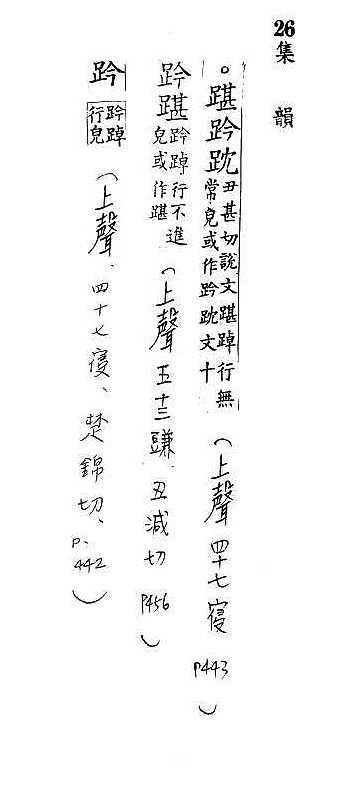 26
集韻
。踸趻踸丑甚切說文踸踔行無常皃或作趻 文十(上聲四十七寑 P443)
趻踸趻踔行不進皃或作踸(上聲五十三豏 丑減切 P456)
趻趻踔行皃(上聲、四十七寑、楚錦切、P.442)